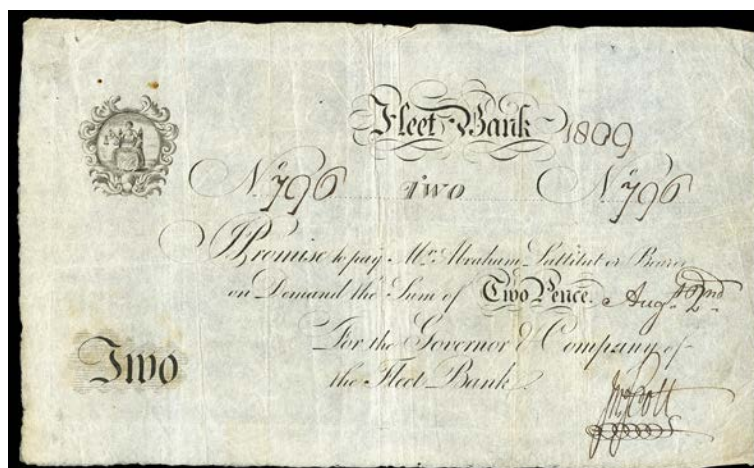 Fleet Bank 1809
No. 796 TWO No. 796
I Promise to pay Mr. Abraham Lattitat or Bearer
on Demand the Sum of Two Pence. Augst. 2nd
For the Governor & Company of
Two
the Fleet Bank